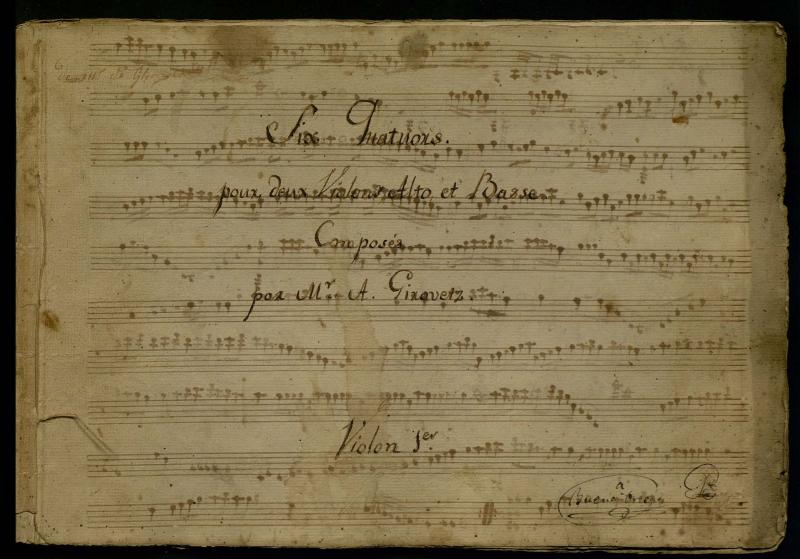 Six Quatuors.
pour deux Violons Alto et Basse
Composés
par Mr. A. Girovetz.
Violon 1er.
à